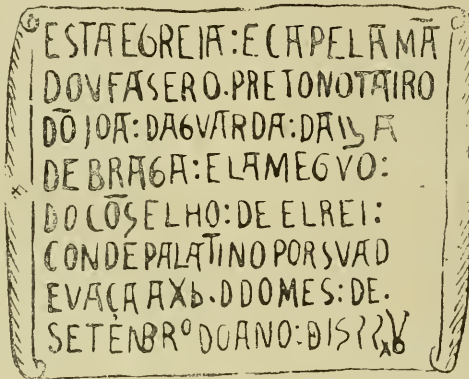 ESTA EGREIA: E CAPELA MÃ
DOV FASER O. PRETONOTAIRO
DÕ JOÃ: DA GVARDA: DA
DE BRAGA: E LAMEGVO:
DO CÕSELHO: DE EL REI:
CONDE PALATINO POR SVA D
EVAÇA A Xb. D DO MES: DE.
SETENBRº DO ANO: